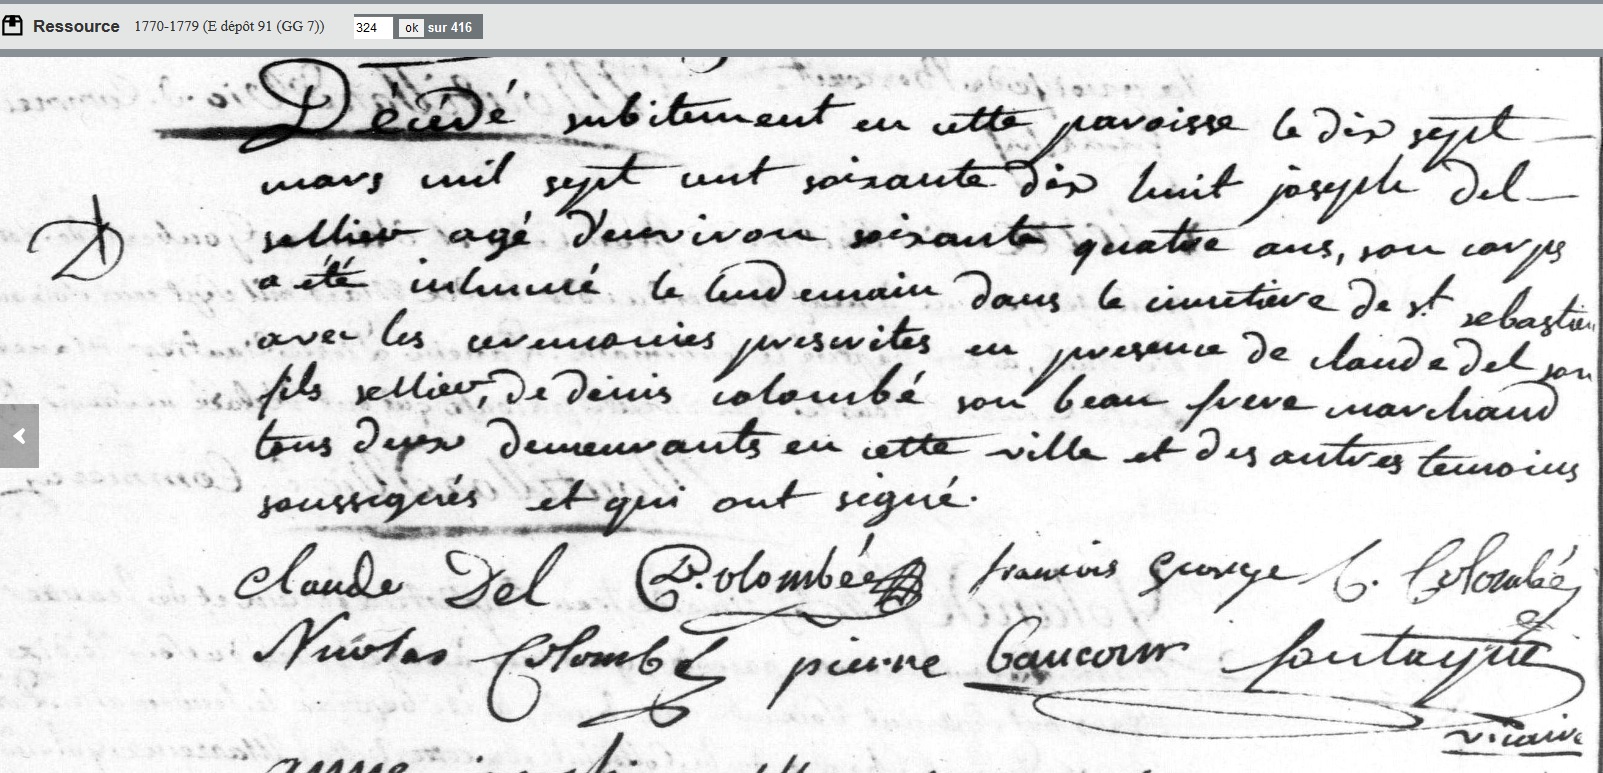 Ressource 1770-1779 (E dépôt 91 (GG 7)) 324 ok sur 416
Décédé subitement en cette paroisse le dix sept
mars mil sept cent soixante dix huit joseph del
sellier agé d'environ soixante quatre ans, son corps
a été inhumé le lendemain dans le cimetiere de st sebastien
avec les ceremonies prescrites en presence de claude del son
fils sellier, de denis colombé son beau frere marchand
tous deux demeurants en cette ville et des autres temoins
soussignés et qui ont signé.
D
claude Del D. Colombé francois George C. Colombé
Nicolas Colombé pierre baucour fontayne
vicaire
anne